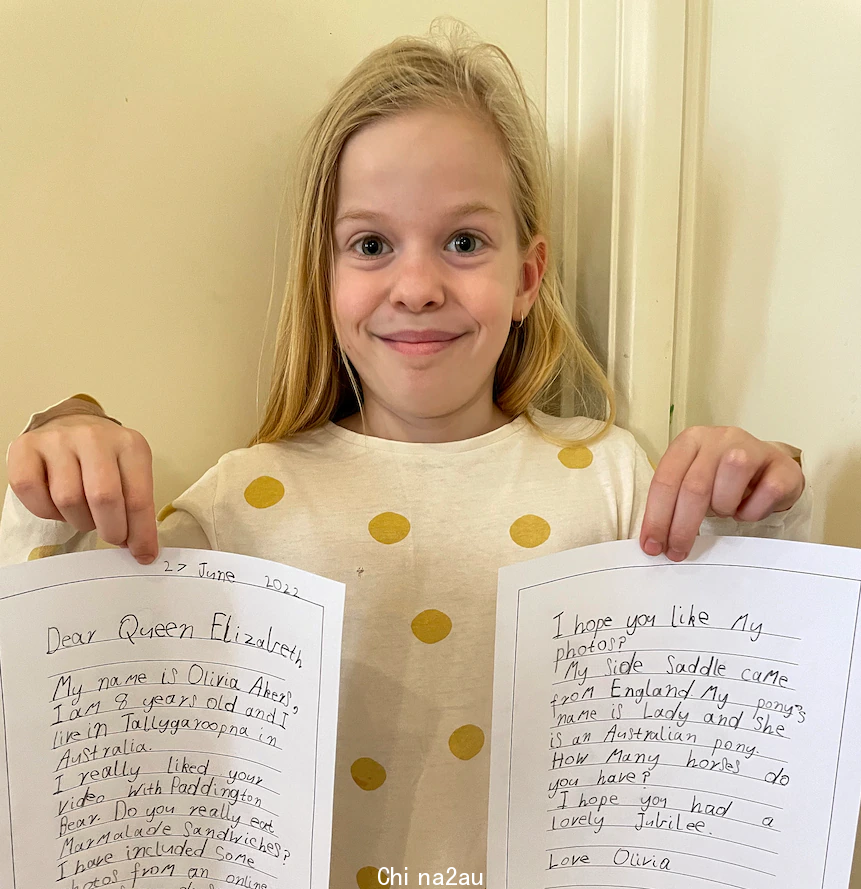 27 June 2022
Dear Queen Elizabeth
My name is Olivia Akers,
I am 8 years old and I
live in Tallygaroopna in
Australia.
I really liked your
video with Paddington
Bear. Do you really eat
Marmalade Sandwiches?
I have included some
photos from an online
I hope you like My
photos?
My side saddle came
from England My pony's
name is Lady and she
is an Australian pony.
How Many horses do
you have?
I hope you had a
lovely Jubilee.
Love Olivia
Chi na2au